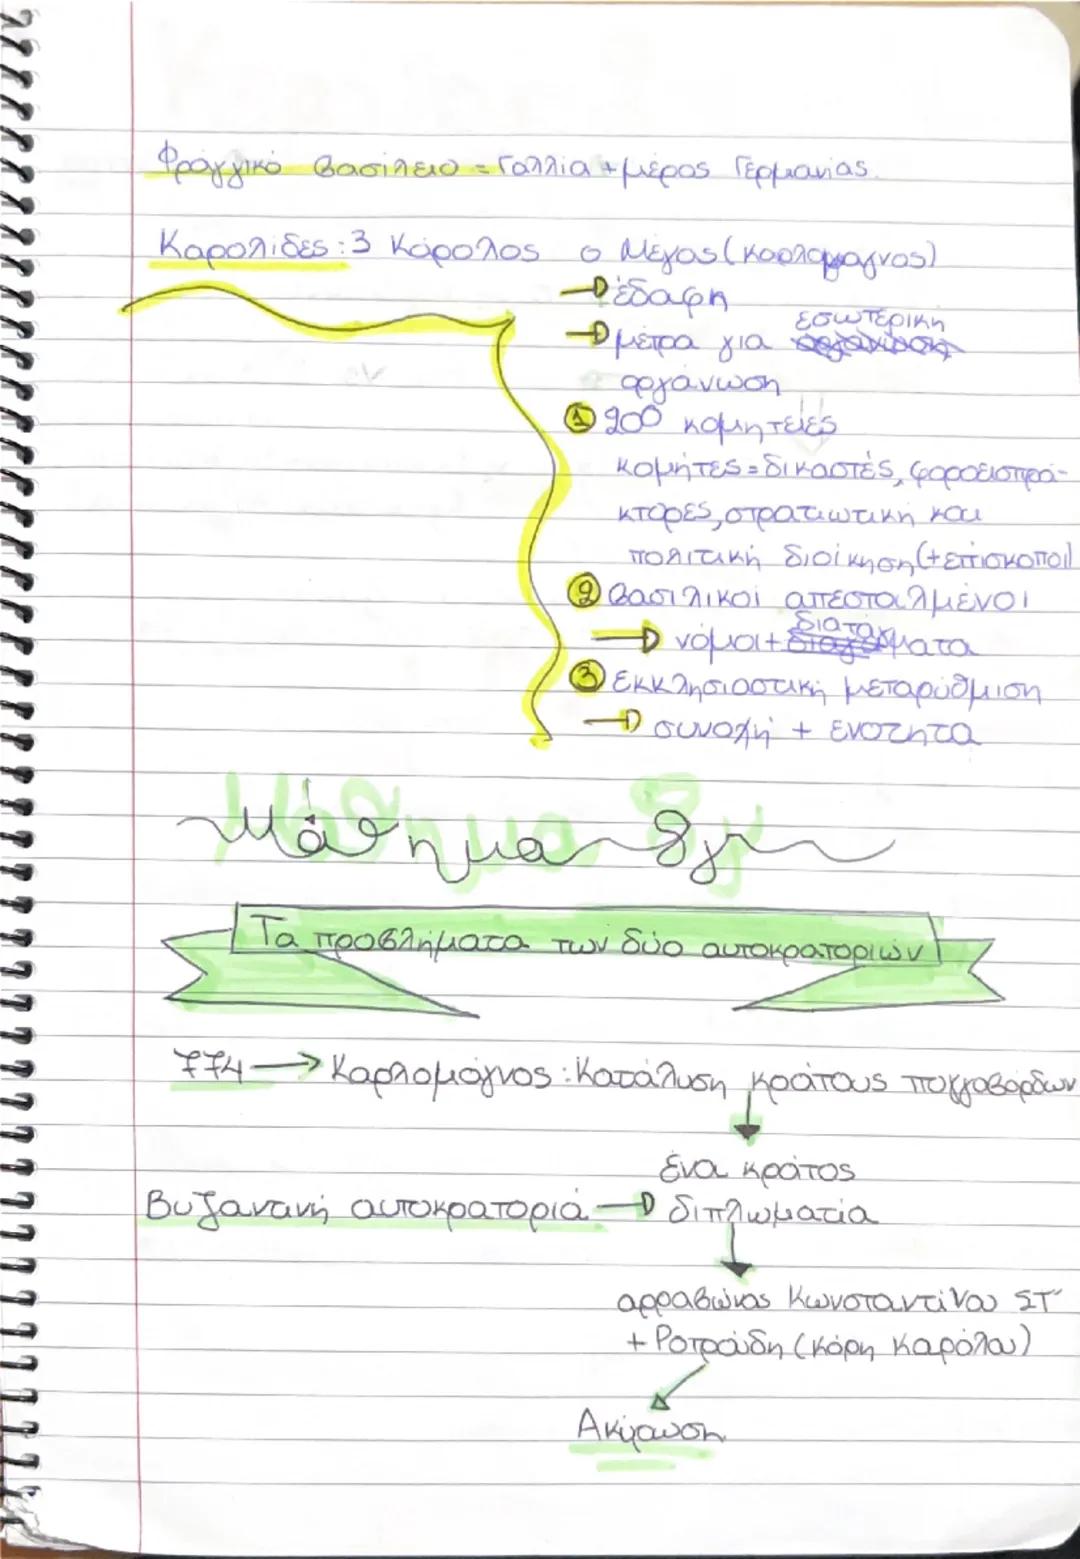 Φράγγικό βασίλειο = Γαλλία + μέρος Γερμανίας.
Καρολίδες: 3 Κάρολος ο Μέγας (Καρλομάγνος)
έδαφη
μέτρα για εσωτερική
οργάνωση
① 200 κομητείες
κομήτες = δικαστές, φοροεισπρά-
κτορες, στρατιωτική και
πολιτική διοίκηση (+ επίσκοποι)
② Βασιλικοί απεσταλμένοι
νόμοι + διατάγματα
③ Εκκλησιαστική μεταρύθμιση
συνοχή + ενότητα
Μάθημα 8γ
Τα προβλήματα των δύο αυτοκρατοριών
774 → Καρλομάγνος: Κατάλυση κράτους Λογγοβάρδων
ένα κράτος
Βυζαντινή αυτοκρατορία → διπλωματία
αρραβώνας Κωνσταντίνου ΣΤ'
+ Ροτρούδη (κόρη Καρόλου)
Ακύρωση